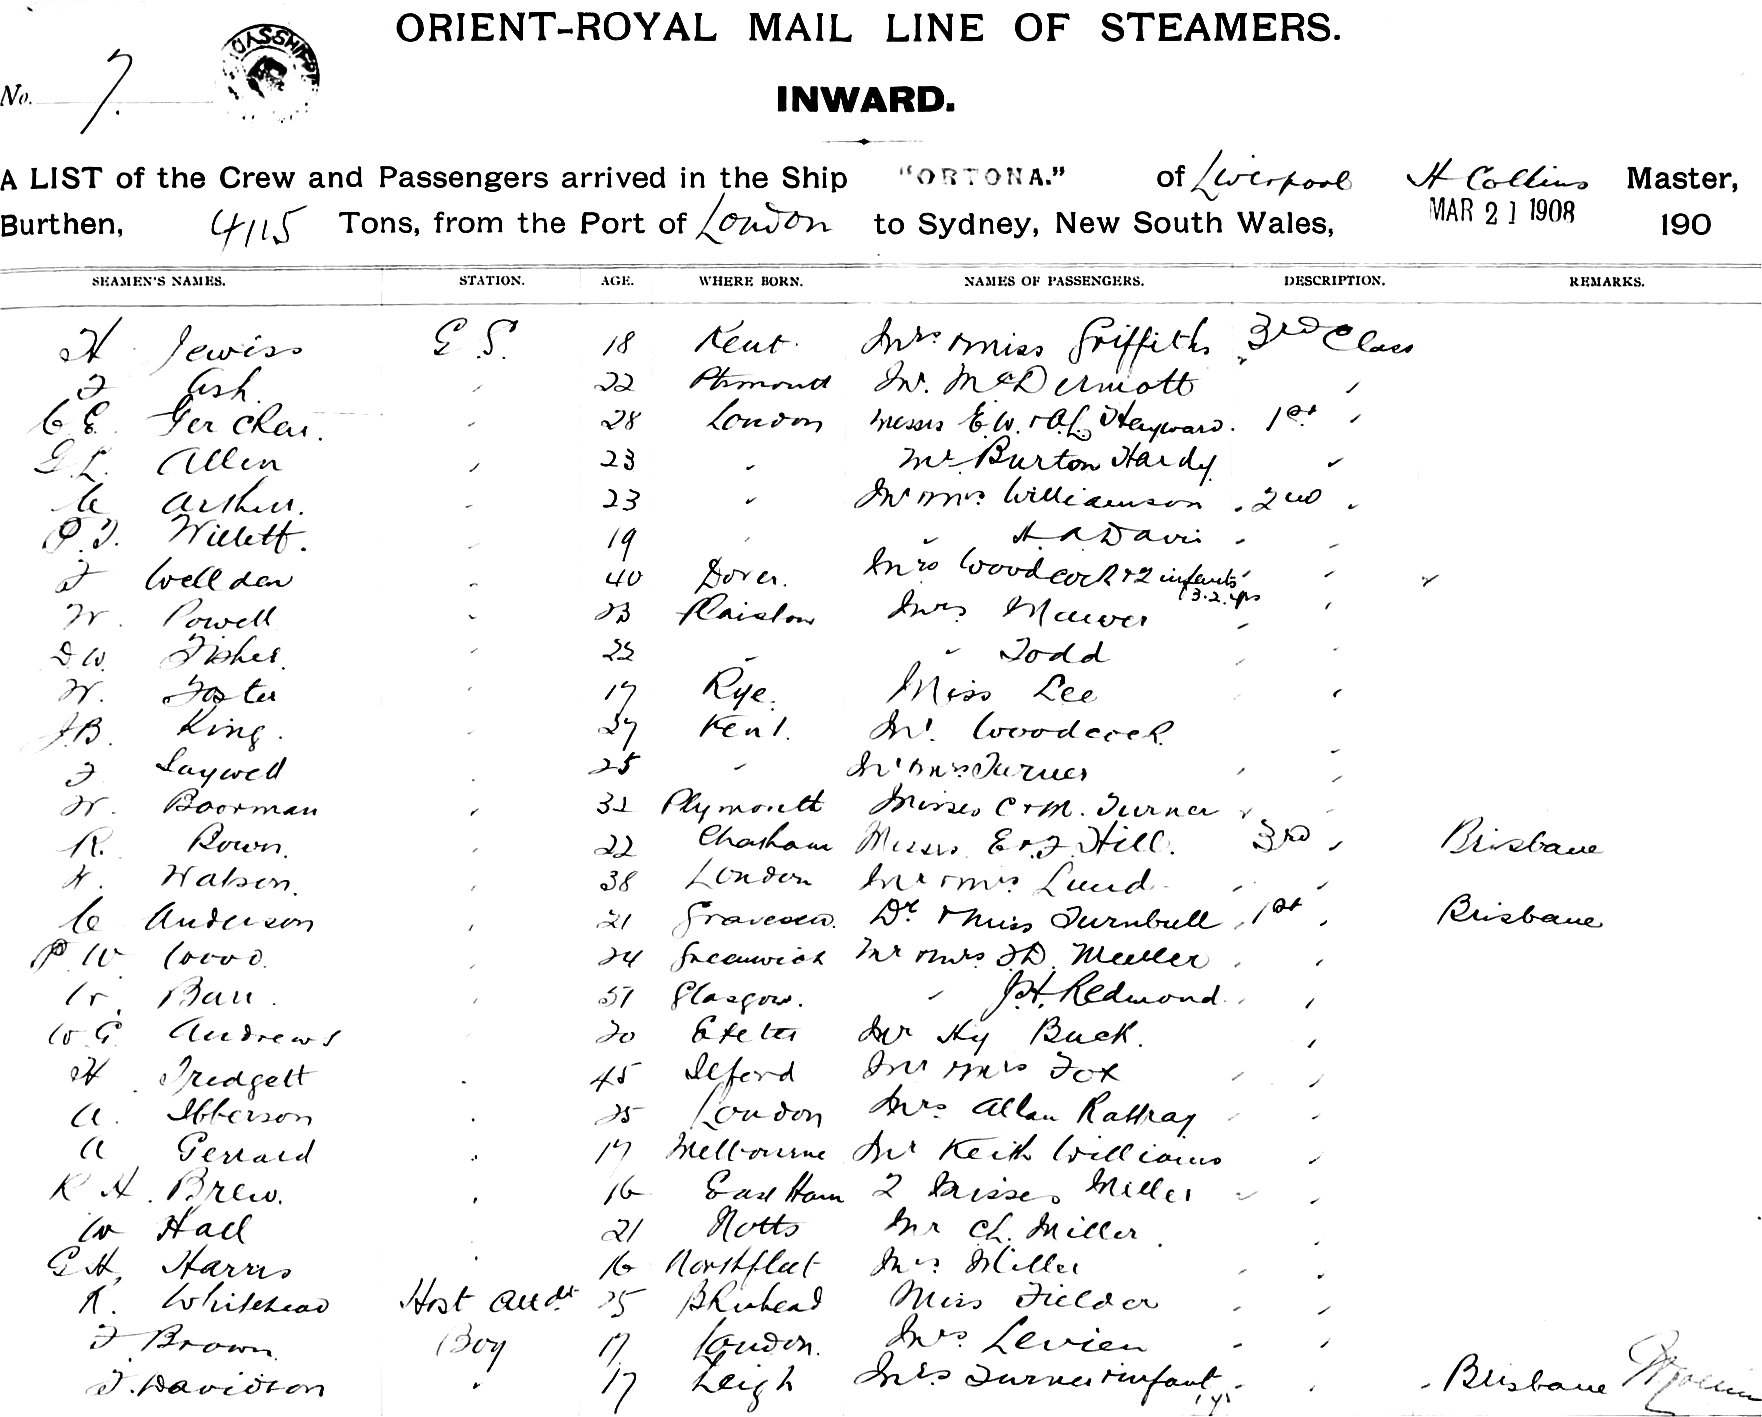 ORIENT-ROYAL MAIL LINE OF STEAMERS.
No. 7.
INWARD.
A LIST of the Crew and Passengers arrived in the Ship "ORTONA." of Liverpool H Collins Master,
Burthen, 4115 Tons, from the Port of London to Sydney, New South Wales, MAR 21 1908 190
SEAMEN'S NAMES. STATION. AGE. WHERE BORN. NAMES OF PASSENGERS. DESCRIPTION. REMARKS.
H Jewiss G S. 18 Kent. Mrs & Miss Griffiths 3rd Class
F Ash. 22 Mr. McDermott
C E 28 London Messrs E.W. & A.L. Hayward. 1st
G L. Allen 23 Mr Burton Hardy
C Arthur. 23 Mr & Mrs Williamson 2nd
Willett. 19 H A Davis
F Wellden 40 Dover. Mrs Woodcock & 2 infants
(3.2. yrs
W. Powell 23 Plaistow Mrs
D W. Fisher. Todd
W. Foster 17 Rye. Miss Lee
J.B. King. 27 Kent. Mr. Woodcock
F Saywell 25 Mr & Mrs Turner
W. Boorman 32 Plymouth Misses C & M. Turner
R. Bown. 22 Chatham Messrs E & F Hill. 3rd Brisbane
H. Watson. 38 London Mr & Mrs Lund
C Anderson 21 Gravesen. Dr & Miss Turnbull 1st Brisbane
P W Wood. 24 Greenwich Mr & Mrs F D. Muller
Barr. 51 Glasgow. J.H. Redmond
W G Andrews 20 Exeter Mr Hy Buck.
H Fredgett 45 Ilford Mr & Mrs Fox
A. Ibberson 25 London Mrs Allan Rattray
A Gerrard 17 Melbourne Mr Keith Williams
R H. Brew. 16 East Ham 2 Misses Miller
W Hall 21 Notts Mr Ch. Miller.
G H, Harris 16 Northfleet Mrs Miller
R. Whitehead Hosp Attdt 25 B'khead Miss Fielder
F Brown. Boy 17 London. Mrs Levien
F. Davidson 17 Leigh Mrs Turner & infant Brisbane
1 yr